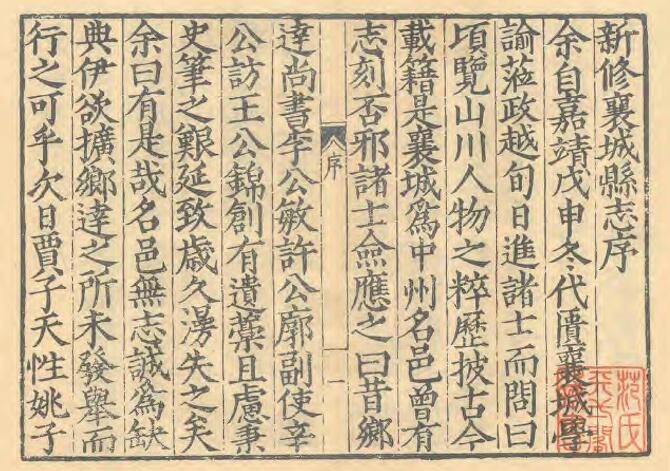 新修襄城縣志序
余自嘉靖戊申冬代匱襄城學
諭蒞政越旬日進諸士而問曰
頃覽山川人物之粹歷披古今
載籍是襄城為中州名邑曾有
志刻否邪諸士僉應之曰昔鄉
序
一
達尚書李公敏許公廓副使辛
公訪王公錦創有遺藁且慮秉
史筆之艱延致歲久湯失之矣
余曰有是哉名邑無志誠為缺
典伊欲擴鄉達之所未發舉而
行之可乎次日賈子天性姚子
范氏